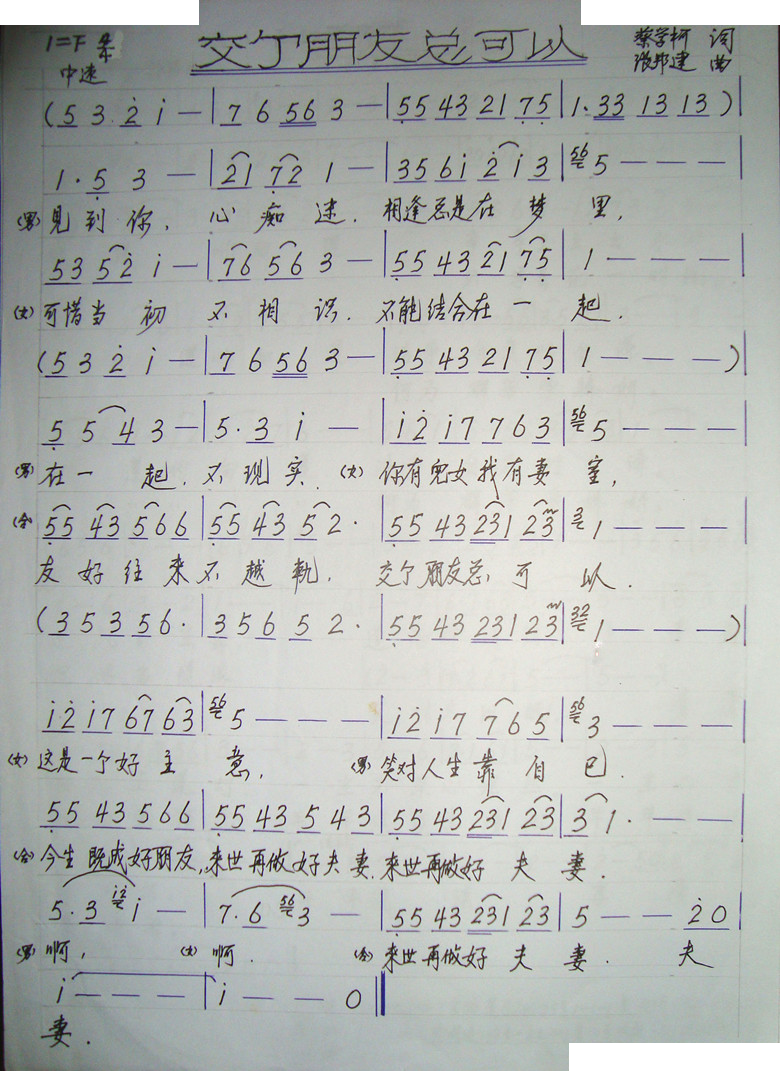 交了朋友总可以
1=F 4/4
中速
蔡学柯 词
邦建 曲
(5 3 2̇ 1̇ — | 7 6 56 3 — | 55 43 21 75 | 1·33 13 13 )
1·5 3 — | 21 72 1 — | 35 61̇ 2̇ 1̇ 3 | 56 5 — — —
(男) 见到你, 心痴迷, 相逢总是在梦里,
53 52̇ 1̇ — | 76 56 3 — | 55 43 21 75 | 1 — — —
(女) 可惜当初不相识. 不能结合在一起.
(5 3 2̇ 1̇ — | 7 6 56 3 — | 55 43 21 75 | 1 — — — )
5 5 4 3 — | 5·3 1̇ — | 1̇2̇ 1̇7 7 6 3 | 56 5 — — —
(男) 在一起. 不现实. (女) 你有儿女我有妻室,
55 43 566 | 55 43 5 2· | 55 43 231 23 | 3 1 — — —
(合) 友好往来不越軌. 交了朋友总可以.
(3 5 3 5 6· | 3 5 6 5 2· | 55 43 231 23 | 32 1 — — — )
1̇2̇ 1̇7 67 63 | 56 5 — — — | 1̇2̇ 1̇7 7 6 5 | 56 3 — — —
(女) 这是一个好主意, (男) 笑对人生靠自己.
55 43 566 | 55 43 5 4 3 | 55 43 231 23 | 3 1· — —
(合) 今生既成好朋友, 来世再做好夫妻. 来世再做好夫妻.
5·3 1̇2̇ 1̇ — | 7·6 56 3 — | 55 43 231 23 | 5 — — 2̇0
(男) 啊, (女) 啊. (合) 来世再做好夫妻. 夫
1̇ — — — | 1̇ — — 0
妻.